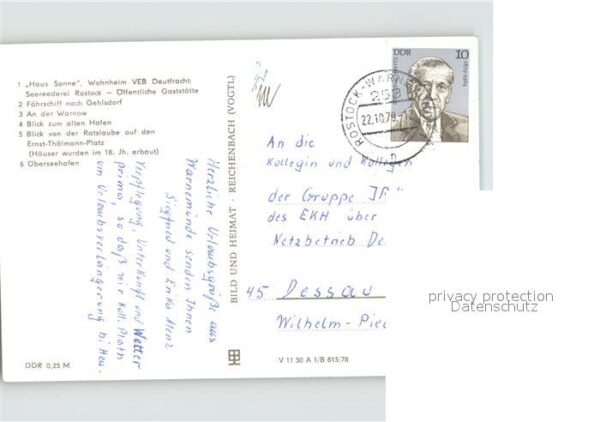 1 „Haus Sonne", Wohnheim VEB Deutfracht
Seereederei Rostock – Öffentliche Gaststätte
2 Fährschiff nach Gehlsdorf
3 An der Warnow
4 Blick zum alten Hafen
5 Blick von der Ratslaube auf den
Ernst-Thälmann-Platz
(Häuser wurden im 18. Jh. erbaut)
6 Überseehafen
Herzliche Urlaubsgrüße aus
Warnemünde senden Ihnen
Siegfried und Erika
Verpflegung, Unterkunft und Wetter
prima, so daß wir Koll.
um Urlaubsverlängerung bi
DDR 0,25 M
BILD UND HEIMAT · REICHENBACH (VOGTL)
V 11 50 A 1/B 815/78
DDR 10
ROSTOCK-WARNE
253
22.10.79
An die
Kollegin und Kollegen
der Gruppe
des EKH über
Netzbetrieb De
45 Dessau
Wilhelm-Piec
privacy protection
Datenschutz